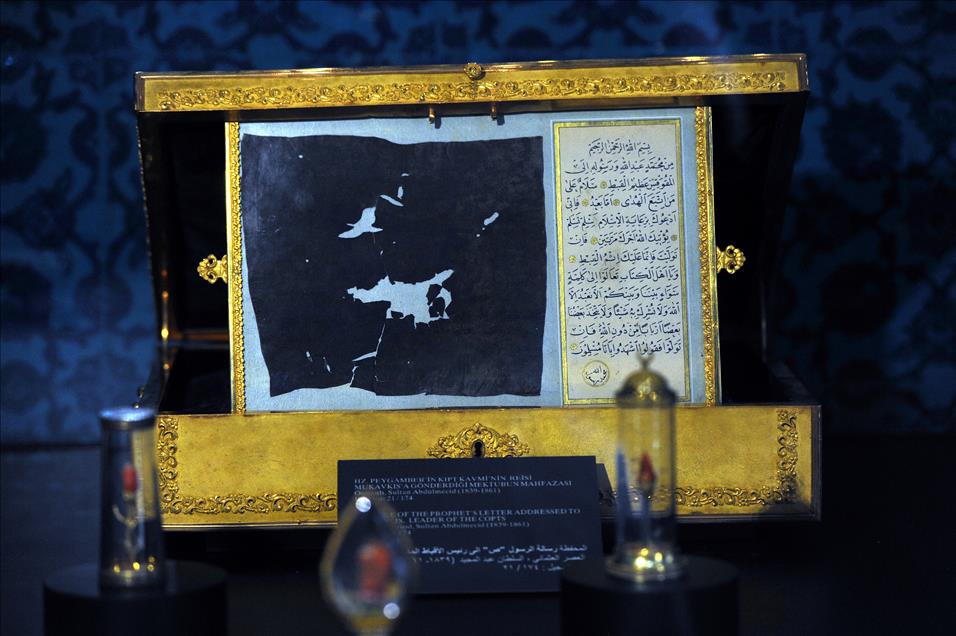 بسم الله الرحمن الرحيم
من محمد عبد الله ورسوله الى
المقوقس عظيم القبط سلام على
من اتبع الهدى اما بعد فانى
ادعوك بدعاية الاسلام اسلم تسلم
يؤتك الله اجرك مرتين فان
توليت فانما عليك اثم القبط
ويا اهل الكتاب تعالوا الى كلمة
سواء بيننا وبينكم الا نعبد الا
الله ولا نشرك به شيئا ولا يتخذ بعضنا
بعضا اربابا من دون الله فان
تولوا فقولوا اشهدوا بانا مسلمون
HZ. PEYGAMBER'İN KIPT KAVMİ'NİN REİSİ
MUKAVKIS'A GÖNDERDİĞİ MEKTUBUN MAHFAZASI
Osmanlı, Sultan Abdülmecid (1839-1861)
21 / 174
OF THE PROPHET'S LETTER ADDRESSED TO
LEADER OF THE COPTS
Sultan Abdülmecid (1839-1861)
المحفظة رسالة الرسول "ص" الى رئيس الأقباط
العصر العثماني ، السلطان عبد المجيد (١٨٣٩ـ
٢١ / ١٧٤